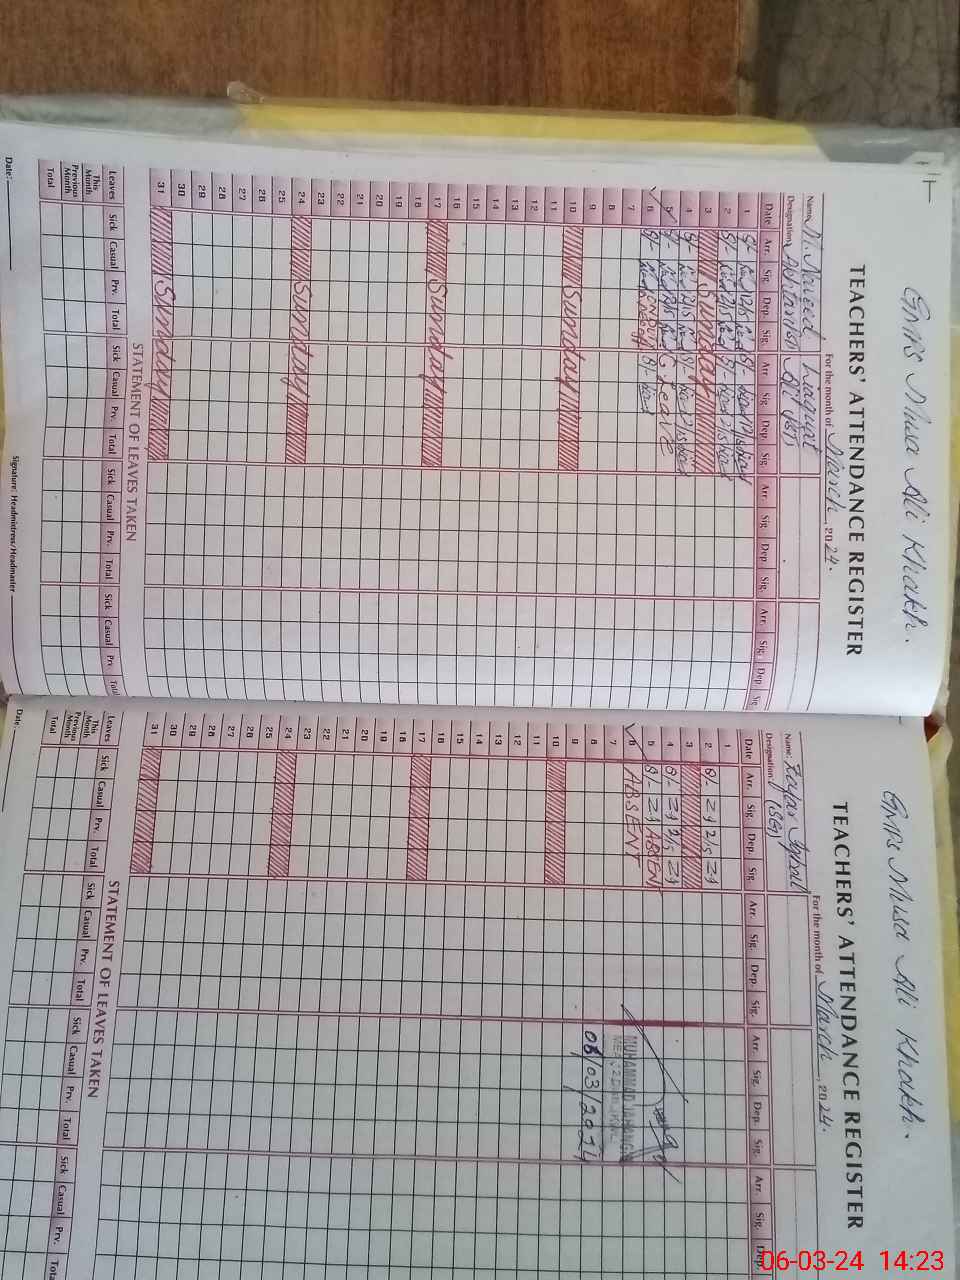 GMPS Musa Ali Khakh.
TEACHERS' ATTENDANCE REGISTER
For the month of March, 2024.
Name: M. Naveed Liaquat
Designation: Ali (PST)
Date Arr. Sig. Dep. Sig. Arr. Sig. Dep. Sig. Arr. Sig. Dep. Sig. Arr. Sig. Dep. Sig.
1 8/- 12/15 8/- 12/15
2 8/- 2/15 8/- 2/15
3 Sunday
4 8/- 2/15 8/- 2/15
5 8/- 2/15 C Leave
6 8/- ON DUTY 8/-
7
8
9
10 Sunday
11
12
13
14
15
16
17 Sunday
18
19
20
21
22
23
24 Sunday
25
26
27
28
29
30
31 Sunday
STATEMENT OF LEAVES TAKEN
Leaves Sick Casual Prv. Total Sick Casual Prv. Total Sick Casual Prv. Total Sick Casual Prv. Total
This Month
Previous Month
Total
Date: Signature: Headmistress/Headmaster
GMPS Musa Ali Khakh.
TEACHERS' ATTENDANCE REGISTER
For the month of March, 2024.
Name: Zafar Iqbal
Designation:
Date Arr. Sig. Dep. Sig. Arr. Sig. Dep. Sig. Arr. Sig. Dep. Sig. Arr. Sig. Dep.
1
2 8/- Z9 2/15 Z9
3
4 8/- Z9 2/15 Z9
5 8/- Z9 ABSEN
6 ABSENT
7
8
9
10
11
12
13
14
15
16
17
18
19
20
21
22
23
24
25
26
27
28
29
30
31
MUHAMMAD JAHANGIR
06/03/2024
STATEMENT OF LEAVES TAKEN
Leaves Sick Casual Prv. Total Sick Casual Prv. Total Sick Casual Prv. Total Sick Casual Prv. Total
This Month
Previous Month
Total
Date:
06-03-24 14:23